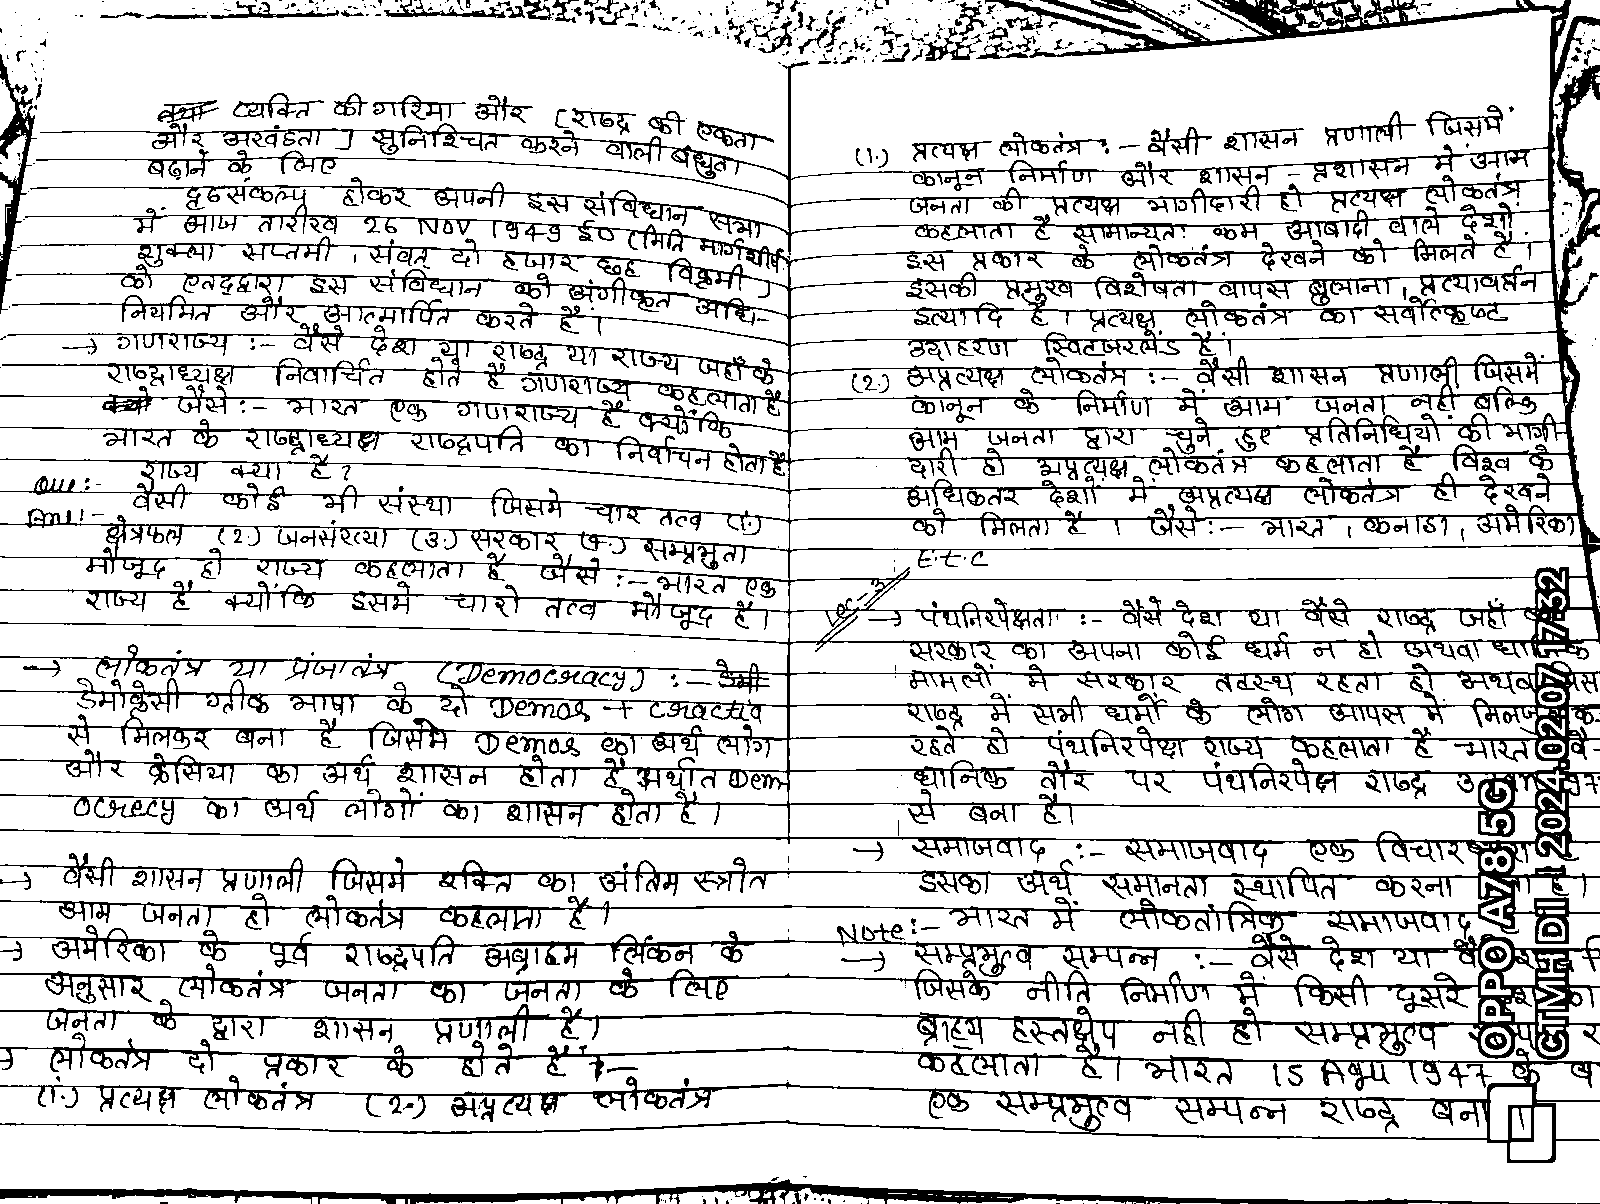 व्यक्ति की गरिमा और [राष्ट्र की एकता
और अखंडता] सुनिश्चित करने वाली बंधुता
बढ़ाने के लिए
दृढसंकल्प होकर अपनी इस संविधान सभा
में आज तारीख 26 NOV 1949 ई० (मिति मार्गशीर्ष
शुक्ला सप्तमी, संवत् दो हजार छह विक्रमी)
को एतद्द्वारा इस संविधान को अंगीकृत अधि-
नियमित और आत्मार्पित करते हैं।
→ गणराज्य :- वैसे देश या राष्ट्र या राज्य जहाँ के
राष्ट्राध्यक्ष निवार्चित होते है गणराज्य कहलाता है
जैसे:- भारत एक गणराज्य है क्योंकि
भारत के राष्ट्राध्यक्ष राष्ट्रपति का निर्वाचन होता है
Que:- राज्य क्या है?
Ans:- वैसी कोई भी संस्था जिसमे चार तत्व (1.)
क्षेत्रफल (2.) जनसंख्या (3.) सरकार (4.) सम्प्रभुता
मौजूद हो राज्य कहलाता है जैसे :- भारत एक
राज्य है क्योंकि इसमे चारो तत्व मौजूद है।
→ लोकतंत्र या प्रंजातंत्र (Democracy) :-
डेमोक्रेसी ग्रीक भाषा के दो Demos + Cractia
से मिलकर बना है जिसमे Demos का अर्थ लोग
और क्रेसिया का अर्थ शासन होता है अर्थात Dem
ocrecy का अर्थ लोगों का शासन होता है।
→ वैसी शासन प्रणाली जिसमे शक्ति का अंतिम स्त्रोत
आम जनता हो लोकतंत्र कहलाता है।
→ अमेरिका के पूर्व राष्ट्रपति अब्राहम लिंकन के
अनुसार लोकतंत्र जनता का जनता के लिए
जनता के द्वारा शासन प्रणाली है।
→ लोकतंत्र दो प्रकार के होते है :-
(1.) प्रत्यक्ष लोकतंत्र (2.) अप्रत्यक्ष लोकतंत्र
(1.) प्रत्यक्ष लोकतंत्र :- वैसी शासन प्रणाली जिसमें
कानून निर्माण और शासन - प्रशासन में आम
जनता की प्रत्यक्ष भागीदारी हो प्रत्यक्ष लोकतंत्र
कहलाता है सामान्यतः कम आबादी वाले देशो
इस प्रकार के लोकतंत्र देखने को मिलते है।
इसकी प्रमुख विशेषता वापस बुलाना, प्रत्यावर्तन
इत्यादि है। प्रत्यक्ष लोकतंत्र का सर्वोत्कृष्ट
उदाहरण स्विटजरलैंड है।
(2.) अप्रत्यक्ष लोकतंत्र :- वैसी शासन प्रणाली जिसमें
कानून के निर्माण में आम जनता नही बल्कि
आम जनता द्वारा चुने हुए प्रतिनिधियों की भागी-
दारी हो अप्रत्यक्ष लोकतंत्र कहलाता है विश्व के
अधिकतर देशों में अप्रत्यक्ष लोकतंत्र ही देखने
को मिलता है। जैसे:- भारत, कनाडा, अमेरिका
E.t.c
Lec-3
→ पंथनिरपेक्षता :- वैसे देश या वैसे राष्ट्र जहाँ
सरकार का अपना कोई धर्म न हो अथवा धार्मिक
मामलों में सरकार तटस्थ रहता हो अथवा
राष्ट्र में सभी धर्मो के लोग आपस में
रहते हो पंथनिरपेक्ष राज्य कहलाता है भारत
धानिक तौर पर पंथनिरपेक्ष राष्ट्र
से बना है।
→ समाजवाद :- समाजवाद एक
इसका अर्थ समानता स्थापित करना
Note:- भारत में लोकतांत्रिक समाजवाद
→ सम्प्रभुत्व सम्पन्न :- वैसे देश या
जिसके नीति निर्माण में किसी दूसरे
ब्राहय हस्तक्षेप नही हो सम्प्रभुत्व
कहलाता है। भारत 15 Aगस्त 1947 के
एक सम्प्रभुत्व सम्पन्न राष्ट्र बना
OPPO A78 5G
CTMH Di | 2024.02.07 17:32